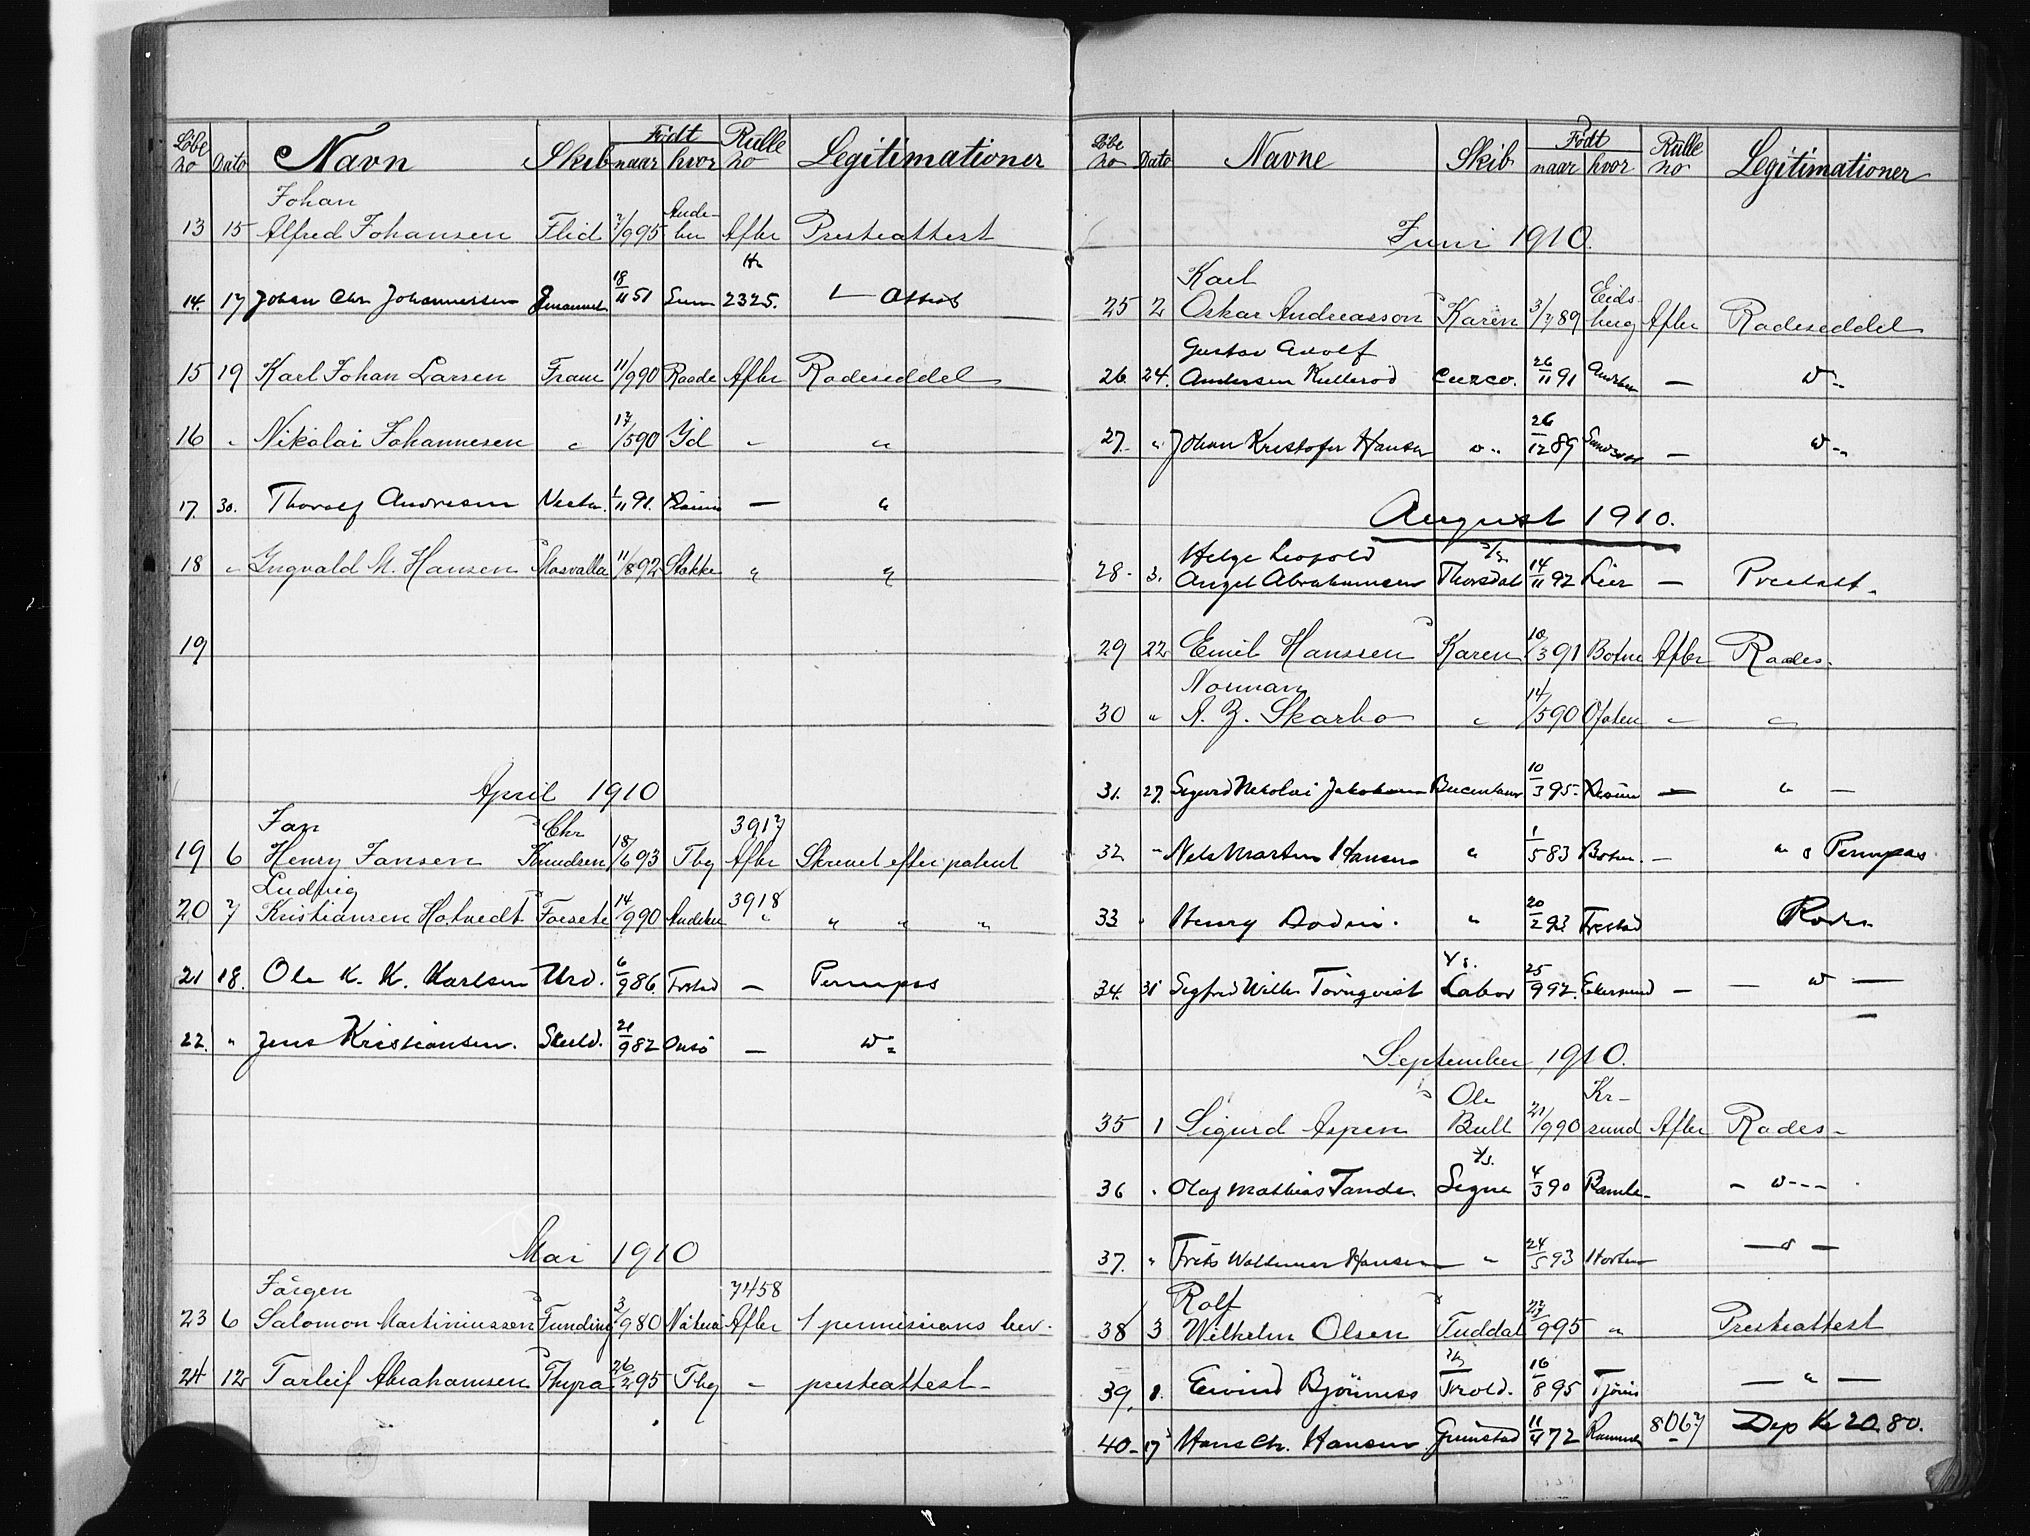 Løbe no Dato Navn Skib Født naar hvor Rulle no Legitimationer
Johan
13 15 Alfred Johansen Flid 7/9 95 Andebu Afbr Presteattest
14. 17 Johan Chr Johannessen Emanuel 18/11 51 2325.
15 19 Karl Johan Larsen Fram 11/9 90 Raade Afbr Radeseddel
16 " Nikolai Johannesen " 17/5 90 Id " "
17. 30. Thoralf Andresen 1/11 91. — "
18 " Ingvald M. Hansen Mosvalla 11/8 92 Stokke " "
19
April 1910
Jan Chr 3917
19 6 Henry Jansen Knudsen 18/6 93 Tbg Afbr Skrevet efter patent
Ludvig 3918
20 7 Kristiansen Hotvedt Forsete 14/9 90 Andebu " " " "
21 18. Ole K. K. Karlsen Urd. 6/9 86. Frstad — Permpas
22. " Jens Kristiansen. Skuld. 21/9 82 Onsø —
Mai 1910
Jørgen 7458
23 6 Salomon Martiniussen Funding 3/9 80 Nøterø Afbr 1 permissions bev.
24 12 Tarleif Abrahamsen Thyra 26/2 95 Tbg " presteattest
Løbe no Dato Navne Skib Født naar hvor Rulle no Legitimationer
Juni 1910.
Karl
25 2 Oskar Andreasson Karen 3/7 89 Eidsberg Afbr Radeseddel
Gustav Adolf
26. 24. Andersen Kullerød Cuzco. 26/11 91 Andebu —
27. " Johan Kristofer Hansen 26/12 89 —
August 1910.
Helge Leopold
28. 3. Angel Abrahamsen Thorsdal 14/11 92 Lier — Prestatt.
29 22 Emil Hanssen Karen 10/3 91 Botne Afbr Rades.
Norman
30 " A. Z. Skarbo " 14/5 90 Ofoten " "
31. 27. Sigurd Nikolai Jakobsen Bucentaur 10/3 95. — " —
32 " Nels Martin Hansen " 1/5 83 Botne. — " Permpas
33 " Henry Bodin. " 20/2 93 Frstad Rades
34. 31 Sigfred Wilh. Törnqvist Labor 25/9 92. Ekersund —
September 1910.
Ole Kr-
35 1 Sigurd Aspen Bull 21/9 90 sund Afbr Rades-
36 " Olaf Mathias Tande. Signe 4/3 90 Bamble
37. " Frits Waldemar Hansen " 24/5 93 Horten
Rolf
38 3 Wilhelm Olsen Tuddal 27/9 95 " Presteattest
39, 8. Eivind Bjönness Trold. 16/8 95 Tjöme — " —
40- 17 Hans Chr. Hansen Grimstad 11/4 72 Ramnes 8067 Dep Kr 20.80.